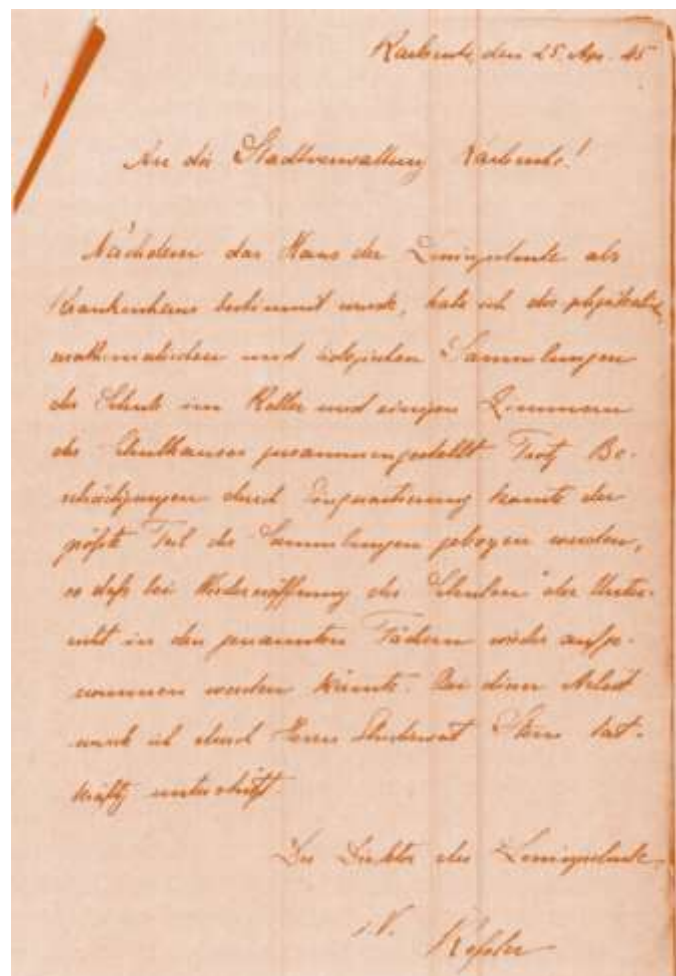 Karlsruhe, den 25. Apr. 45
An die Stadtverwaltung Karlsruhe!
Nachdem das Haus der Lessingschule als
Krankenhaus bestimmt wurde, habe ich die physikalischen,
mathematischen und biologischen Sammlungen
der Schule im Keller und einigen Zimmern
des Schulhauses zusammengestellt. Trotz Be-
schädigungen durch Einquartierung konnte der
größte Teil der Sammlungen geborgen werden,
so daß bei Wiedereröffnung der Schulen der Unter-
richt in den genannten Fächern wieder aufge-
nommen werden könnte. Bei dieser Arbeit
wurde ich durch Herrn Studienrat Stein tat-
kräftig unterstützt.
Der Direktor der Lessingschule
i.V.